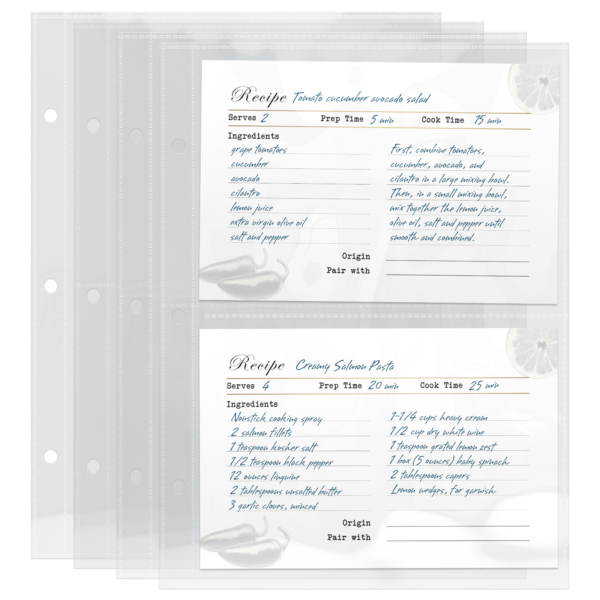 Recipe Tomato cucumber avocado salad
Serves 2 Prep Time 5 min Cook Time 15 min
Ingredients
grape tomatoes
cucumber
avocado
cilantro
lemon juice
extra virgin olive oil
salt and pepper
First, combine tomatoes,
cucumber, avocado, and
cilantro in a large mixing bowl.
Then, in a small mixing bowl,
mix together the lemon juice,
olive oil, salt and pepper until
smooth and combined.
Origin
Pair with
Recipe Creamy Salmon Pasta
Serves 4 Prep Time 20 min Cook Time 25 min
Ingredients
Nonstick cooking spray
2 salmon fillets
1 teaspoon kosher salt
1/2 teaspoon black pepper
12 ounces linguine
2 tablespoons unsalted butter
3 garlic cloves, minced
1-1/4 cups heavy cream
1/2 cup dry white wine
1 teaspoon grated lemon zest
1 box (5 ounces) baby spinach
2 tablespoons capers
Lemon wedges, for garnish
Origin
Pair with